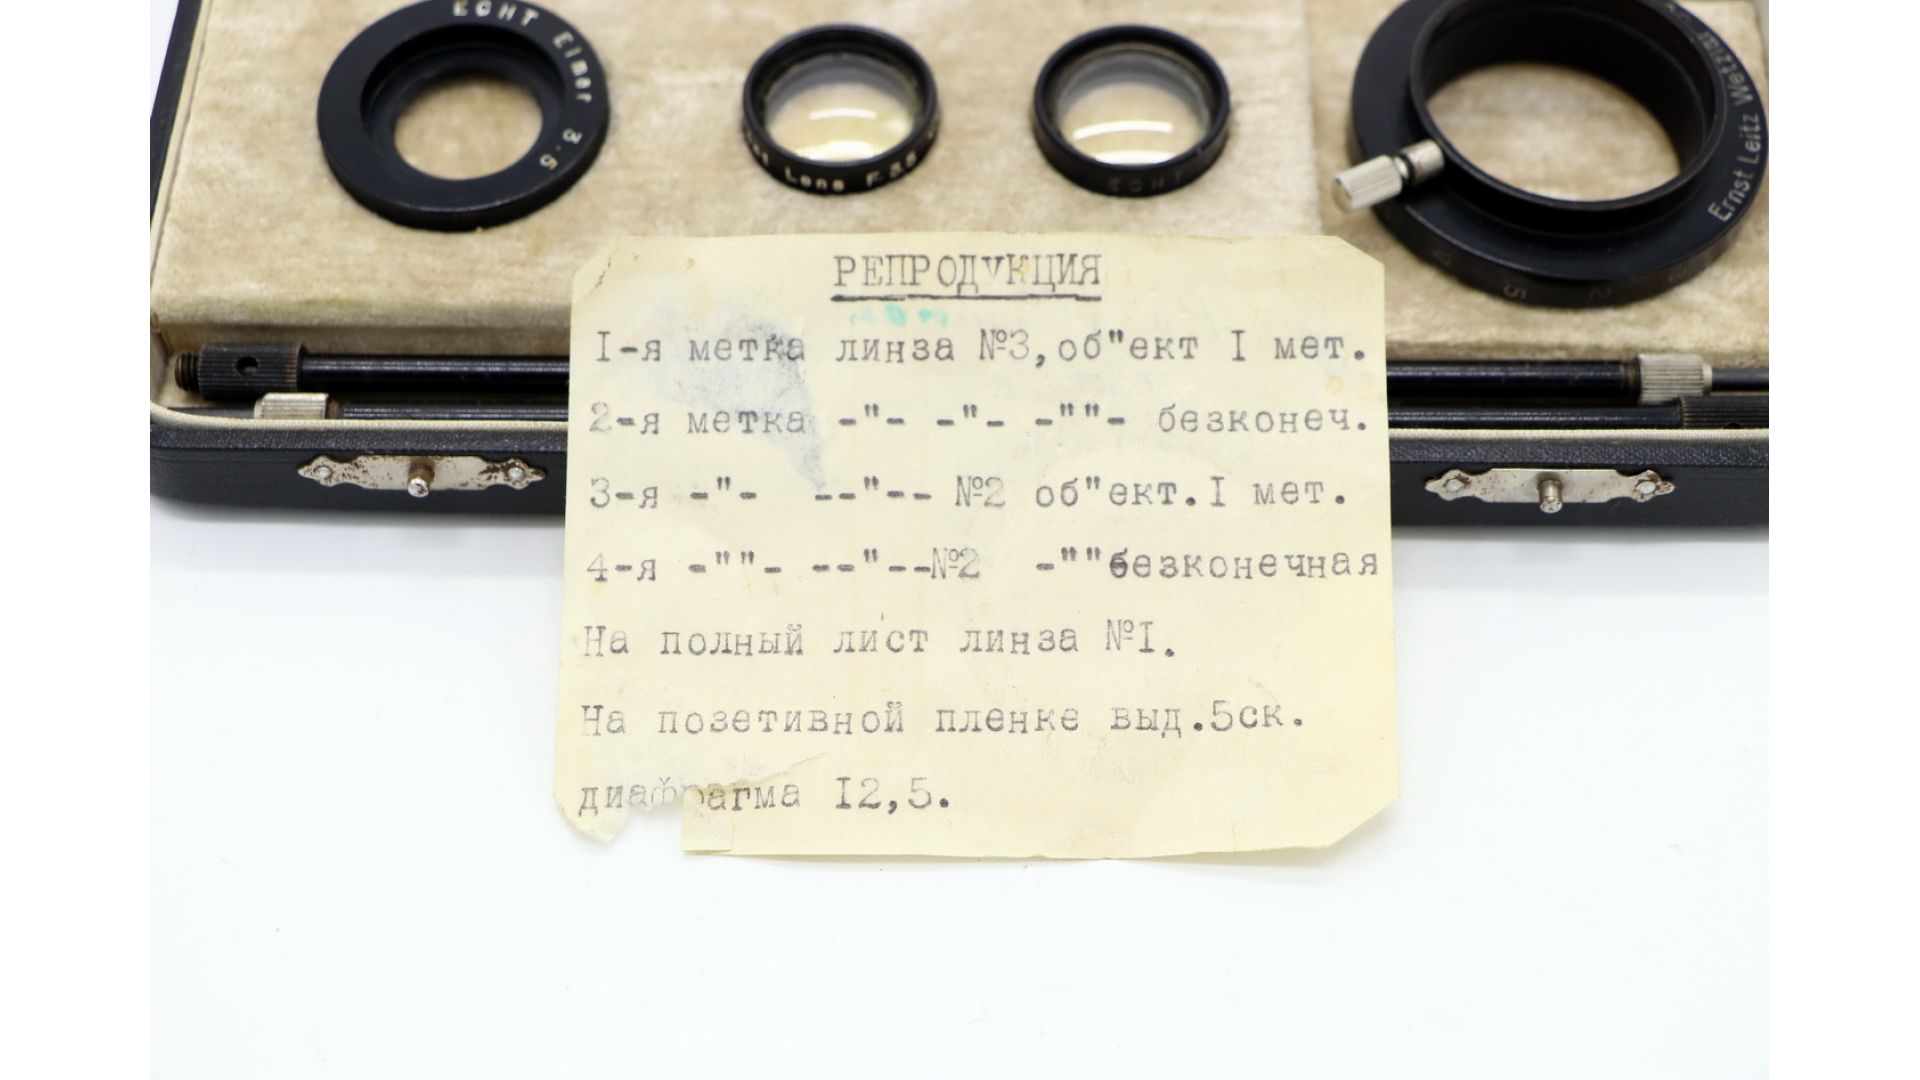 ECHT Elmar 3.5
Lens F.3.5
ECHT
Ernst Leitz Wetzlar
РЕПРОДУКЦИЯ
I-я метка линза №3,об"ект I мет.
2-я метка -"- -"- -""- безконеч.
3-я -"- --"-- №2 об"ект.I мет.
4-я -""- --"--№2 -""безконечная
На полный лист линза №I.
На позетивной пленке выд.5ск.
диафрагма I2,5.